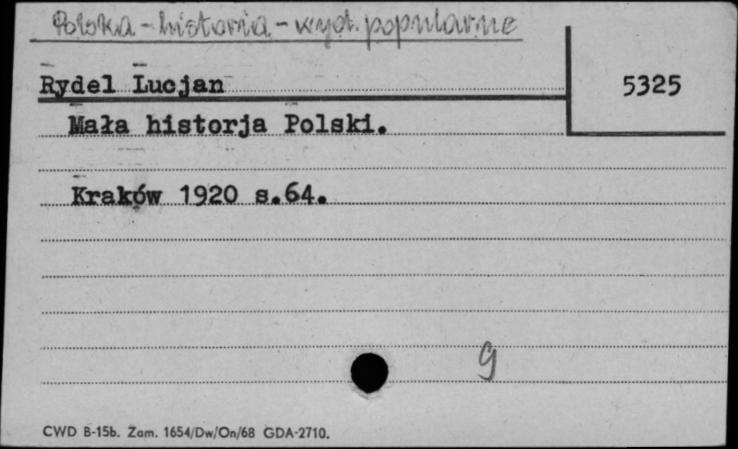 Polska - historia - wyd. popularne
Rydel Lucjan
5325
Mała historja Polski.
Kraków 1920 s.64.
9
CWD B-15b. Zam. 1654/Dw/On/68 GDA-2710.